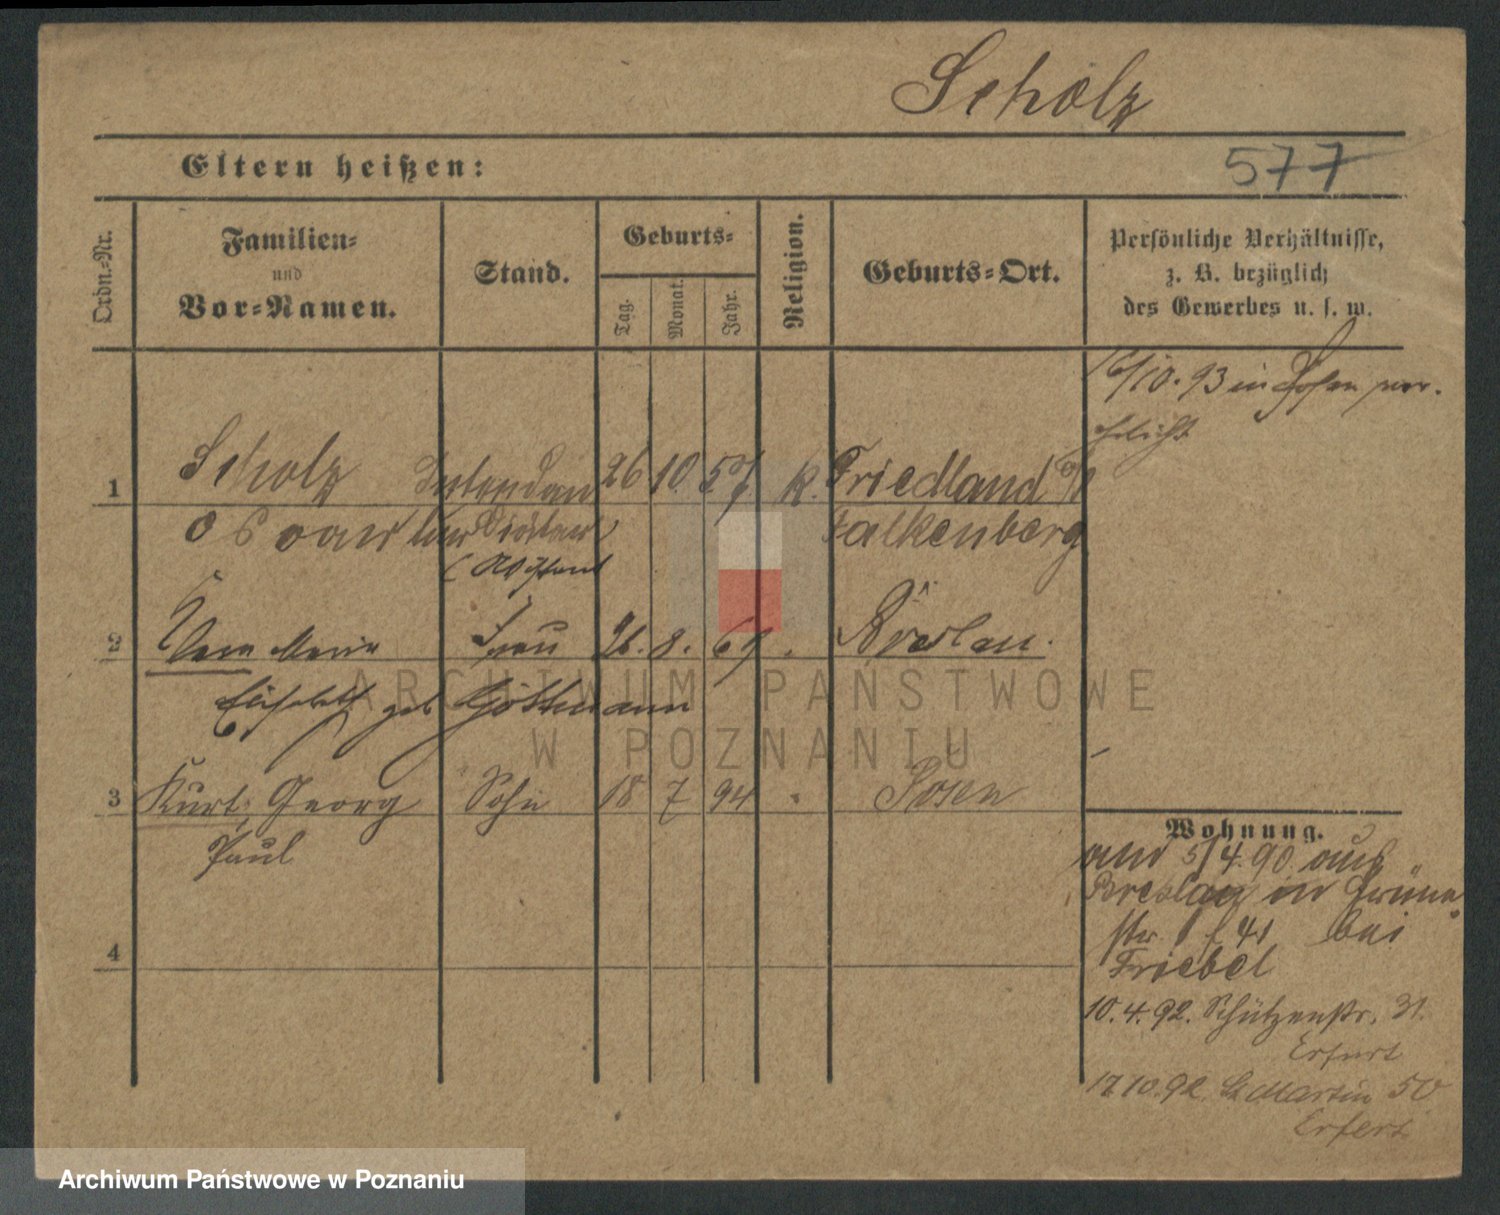 Scholz
Eltern heißen:
577
Ordn.-Nr.
Familien-
und
Vor-Namen.
Stand.
Geburts-
Tag.
Monat.
Jahr.
Religion.
Geburts-Ort.
Persönliche Verhältnisse,
z. B. bezüglich
des Gewerbes u. s. w.
16/10. 93 in Posen ver-
ehelicht
1
Scholz
26
10
57
k.
Friedland o/s
Falkenberg
2
Marie
Frau
26. 8. 69
Breslau.
Elisabeth geb Göttmann
3
Kurt, Georg
Sohn
18
7
94
Posen
Paul
4
Wohnung.
5/4. 90. aus
Breslau in Grüne
str. 1 bei
Friebel
10. 4. 92. Schützenstr. 31.
Erfurt
17.10.92. St Martin 50
ARCHIWUM PAŃSTWOWE
W POZNANIU
Archiwum Państwowe w Poznaniu